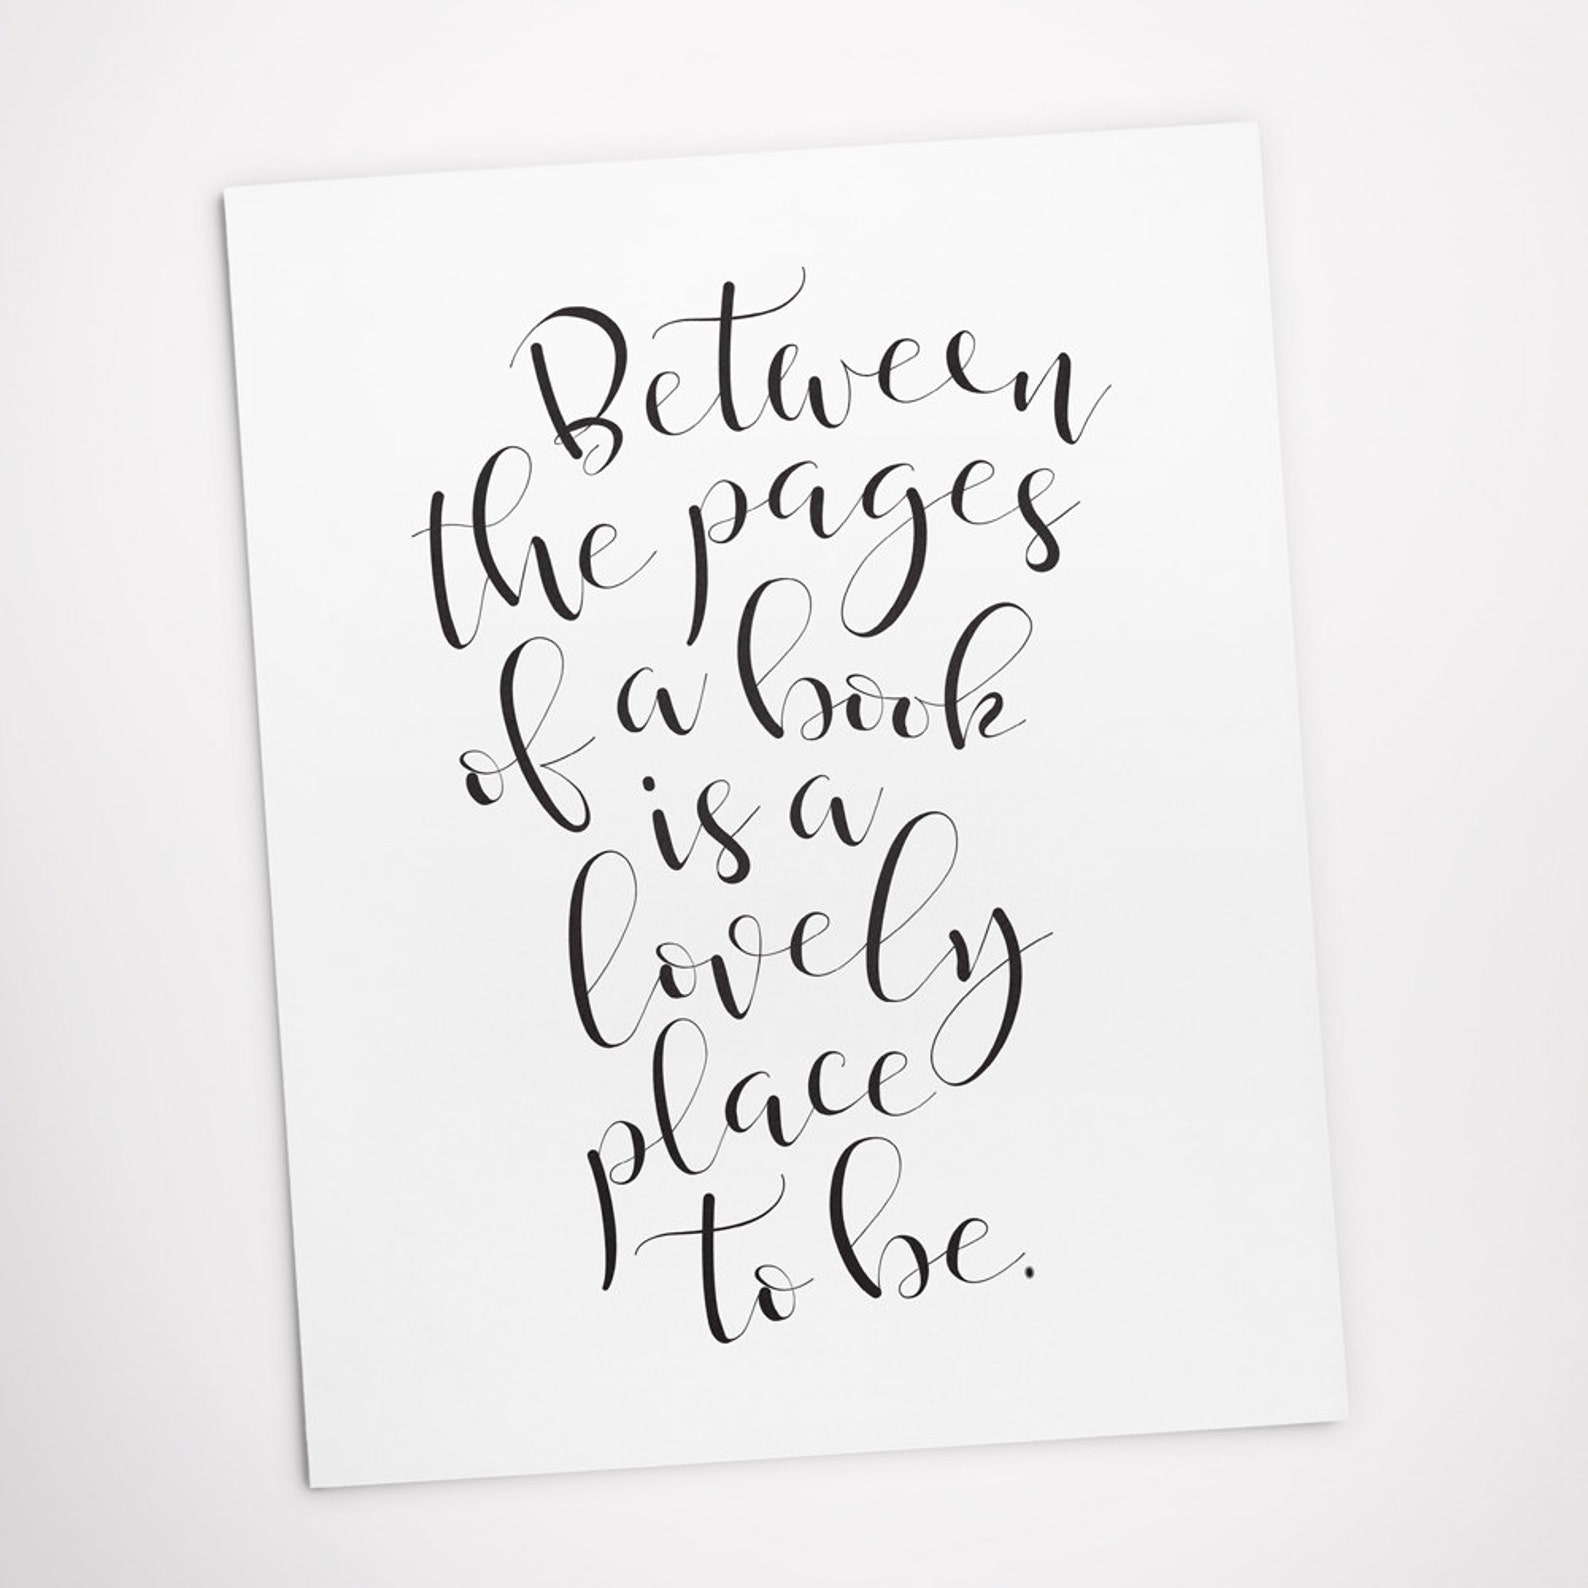 Between
the pages
of a book
is a
lovely
place
to be.